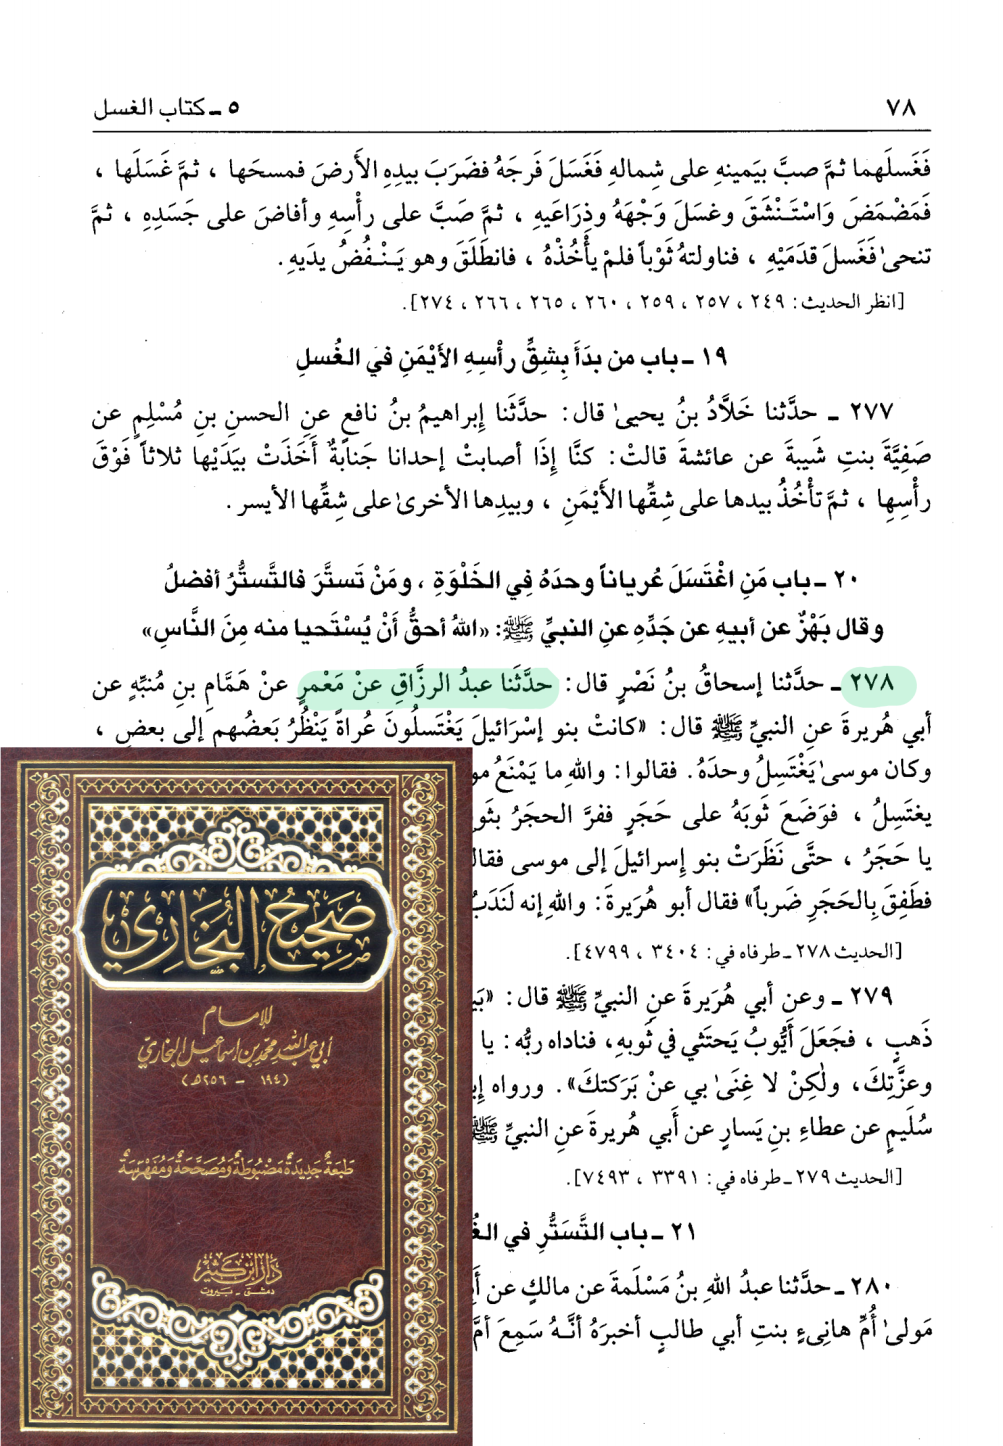 ٧٨
٥ ـ كتاب الغسل
فَغَسلَهما ثمَّ صبَّ بيَمينهِ على شِمالهِ فَغَسلَ فَرجَهُ فضَرَبَ بيدِهِ الأَرضَ فمسحَها ، ثمَّ غَسَلَها ،
فَمَضْمَضَ وَاسْتَـنْشَقَ وغسلَ وَجْهَهُ وذِرَاعَيهِ ، ثمَّ صَبَّ على رأْسِهِ وأفاضَ على جَسَدِهِ ، ثمَّ
تنحىٰ فَغَسلَ قدَمَيْهِ ، فناولتهُ ثَوْباً فلمْ يأْخُذْهُ ، فانطَلَقَ وهو يَـنْـفُضُ يدَيهِ .
[انظر الحديث : ٢٤٩ ، ٢٥٧ ، ٢٥٩ ، ٢٦٠ ، ٢٦٥ ، ٢٦٦ ، ٢٧٤].
١٩ ـ باب من بدَأَ بِشِقِّ رأْسِهِ الأَيْمَنِ في الغُسلِ
٢٧٧ ـ حدَّثنا خَلَّادُ بنُ يحيىٰ قال : حدَّثَنا إبراهيمُ بنُ نافعٍ عنِ الحسنِ بنِ مُسْلِمٍ عن
صَفِيَّةَ بنتِ شَيبةَ عن عائشةَ قالتْ : كنَّا إذَا أصابتْ إحدانا جَنابةٌ أَخَذَتْ بيَدَيْها ثلاثاً فَوْقَ
رأْسِها ، ثمَّ تأْخُذُ بيدها على شِقِّها الأَيْمَنِ ، وبيدِها الأخرىٰ على شِقِّها الأيسر .
٢٠ ـ باب مَنِ اغْتَسَلَ عُرياناً وحدَهُ فِي الخَلْوَةِ ، ومَنْ تَستَّرَ فالتَّستُّرُ أفضلُ
وقال بَهْزٌ عن أبيهِ عن جَدِّهِ عنِ النبيِّ ﷺ : «اللهُ أحقُّ أَنْ يُسْتَحيا منه مِنَ النَّاسِ»
٢٧٨ ـ حدَّثنا إسحاقُ بنُ نَصْرٍ قال : حدَّثَنا عبدُ الرزَّاقِ عنْ مَعْمرٍ عنْ هَمَّامِ بنِ مُنبِّهٍ عن
أبي هُريرةَ عنِ النبيِّ ﷺ قال : «كانتْ بنو إسْرَائيلَ يَغْتَسلُونَ عُراةً يَنْظُرُ بَعضُهم إلى بعضٍ ،
وكان موسىٰ يَغْتَسِلُ وحدَهُ . فقالوا : واللهِ ما يَمْنَعُ
يغتَسِلُ ، فوَضَعَ ثَوبَهُ على حَجَرٍ ففرَّ الحجَرُ
يا حَجَرُ ، حتَّى نَظَرَتْ بنو إسرائيلَ إلى موسى
فطَفِقَ بِالحَجَرِ ضَرباً» فقال أبو هُرَيرةَ : واللهِ إنه لَنَدَبٌ
[الحديث ٢٧٨ ـ طرفاه في : ٣٤٠٤ ، ٤٧٩٩].
٢٧٩ ـ وعن أبي هُرَيرةَ عنِ النبيِّ ﷺ قال :
ذَهبٍ ، فجَعَلَ أَيُّوبُ يَحتَثي في ثَوبهِ، فناداه ربُّه : يا
وعزَّتِكَ، ولٰكِنْ لا غِنَىٰ بي عنْ بَرَكتكَ» . ورواه
سُلَيمٍ عن عطاءِ بنِ يَسارٍ عن أَبي هُريرةَ عنِ النبيِّ ﷺ
[الحديث ٢٧٩ ـ طرفاه في : ٣٣٩١ ، ٧٤٩٣].
٢١ ـ باب التَّسَتُّرِ في
٢٨٠ ـ حدَّثنا عبدُ اللهِ بنُ مَسْلَمةَ عن مالكٍ عن
مَولىٰ أُمِّ هانىءٍ بنتِ أبي طالبٍ أخبرَهُ أنَّـهُ سَمِعَ
صَحِيحُ البُخَارِي
للإمام
أبي عبد الله محمد بن اسماعيل البخاري
(١٩٤ - ٢٥٦هـ)
طَبعَةٌ جَديدَةٌ مَضبُوطَةٌ ومُصَحَّحَةٌ ومُفَهرَسَةٌ
دَارُ ابْن كَثِير
دمشق - بيروت